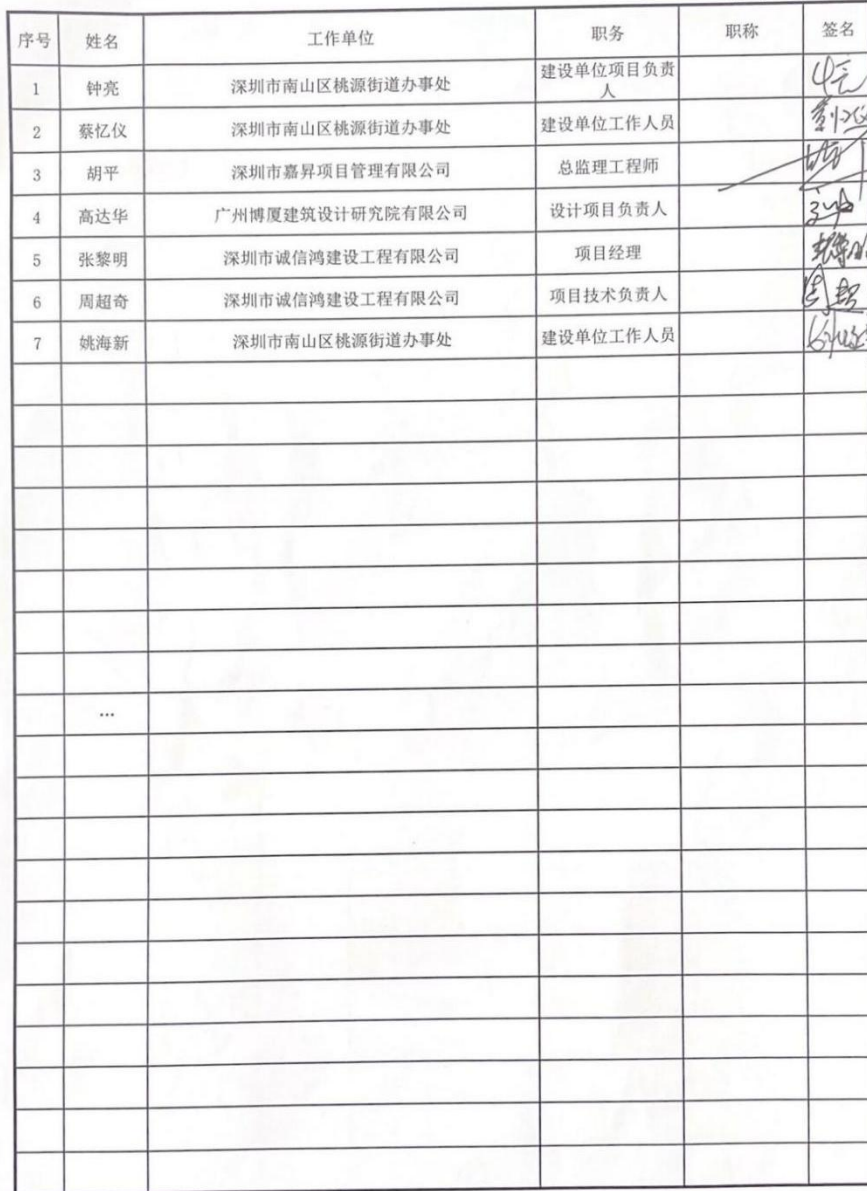 序号 姓名 工作单位 职务 职称 签名
1 钟亮 深圳市南山区桃源街道办事处 建设单位项目负责
人
2 蔡忆仪 深圳市南山区桃源街道办事处 建设单位工作人员
3 胡平 深圳市嘉昇项目管理有限公司 总监理工程师
4 高达华 广州博厦建筑设计研究院有限公司 设计项目负责人
5 张黎明 深圳市诚信鸿建设工程有限公司 项目经理
6 周超奇 深圳市诚信鸿建设工程有限公司 项目技术负责人
7 姚海新 深圳市南山区桃源街道办事处 建设单位工作人员
...